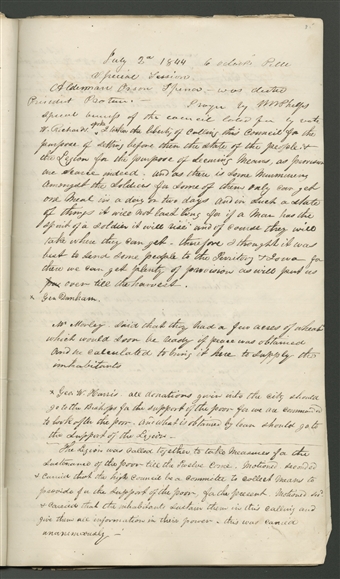 July 2nd 1844 6 oclock P.M.
Special Session
Alderman Orson Spencer was elected
President Protem. — Prayer by W W Phelps
special business of the council called for by
W. Richards spoke I take the liberty of Calling this Council for the
purpose of setting before them the state of the people &
the Legion for the purpose of Securing Means, as provision
are scarce indeed. and as there is some Murmuring
amongst the Soldiers for some of them only can get
one Meal in a day or two days and in such a state
of things it will not last long for if a Man has the
spirit of a Soldier it will rise and of course they will
take where they can get — therefore I thought it was
best to send some people to the Territory of Iowa for
there we can get plenty of provision as will put us
over till the harvest.
x Geo Dunham.
Mr Morley said that they had a few acres of wheat
which would soon be ready if peace was obtained
and calculated to bring it here to supply the
inhabitants
x Geo W. Harris all donations given into the city should
go to the Bishops for the support of the poor for we are commanded
to look after the poor. and what is obtained by loan should go to
the support of the Legion —
The Legion was called together to take Measures for the
Sustenance of the poor till the Twelve Come. Motioned seconded
& carried that the high council be a Committee to collect Means to
provide for the support of the poor, for the present Motioned sec
& carried that the inhabitants sustain them in this calling and
give them all information in their power — this was carried
unanimously —